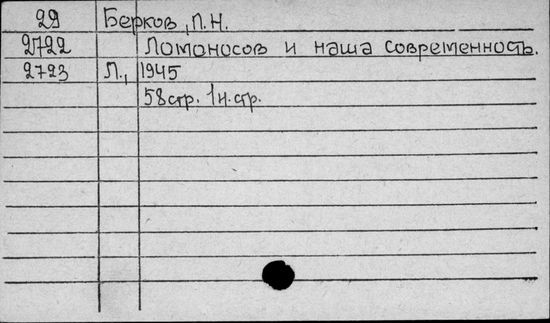 29 Берков, П.Н.
2722 Ломоносов и наша современность.
2723 Л., 1945
58стр. 1н.стр.